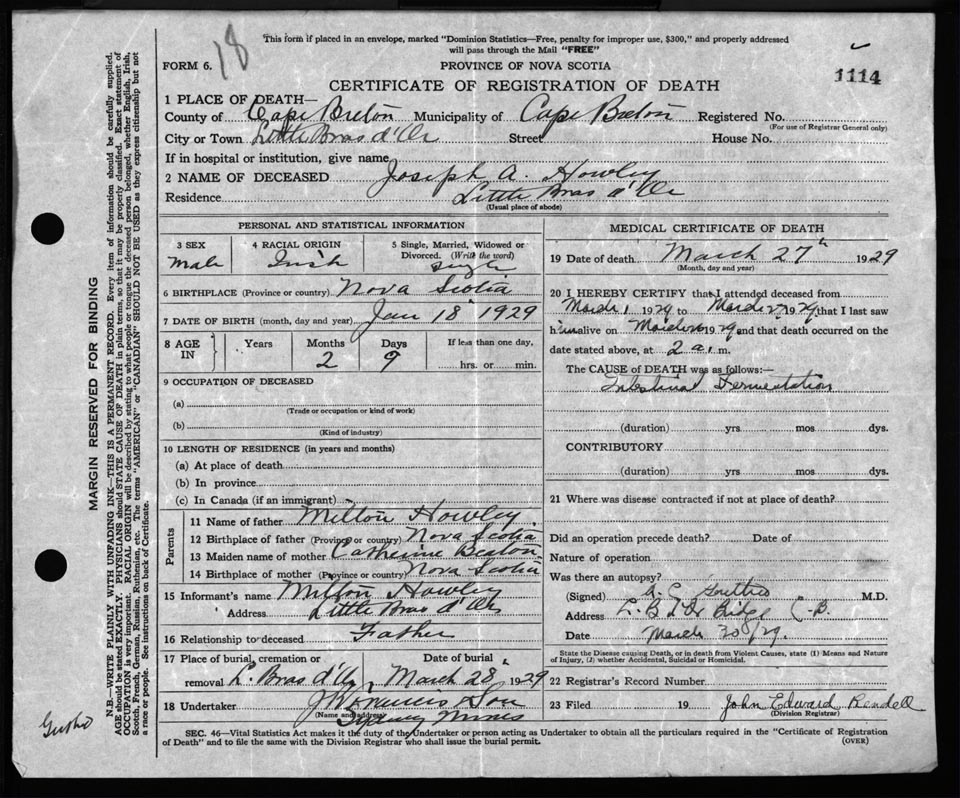 18
This form if placed in an envelope, marked "Dominion Statistics—Free, penalty for improper use, $300," and properly addressed
will pass through the Mail "FREE"
FORM 6.
PROVINCE OF NOVA SCOTIA
1114
CERTIFICATE OF REGISTRATION OF DEATH
1 PLACE OF DEATH—
County of Cape Breton Municipality of Cape Breton Registered No.
(For use of Registrar General only)
City or Town Little Bras d'Or Street House No.
If in hospital or institution, give name
2 NAME OF DECEASED Joseph A. Howley
Residence Little Bras d'Or
(Usual place of abode)
PERSONAL AND STATISTICAL INFORMATION
3 SEX Male
4 RACIAL ORIGIN Irish
5 Single, Married, Widowed or Divorced. (Write the word) Single
6 BIRTHPLACE (Province or country) Nova Scotia
7 DATE OF BIRTH (month, day and year) Jan 18 1929
8 AGE IN Years Months 2 Days 9 If less than one day, hrs. or min.
9 OCCUPATION OF DECEASED
(a)
(Trade or occupation or kind of work)
(b)
(Kind of industry)
10 LENGTH OF RESIDENCE (in years and months)
(a) At place of death
(b) In province
(c) In Canada (if an immigrant)
Parents
11 Name of father Milton Howley
12 Birthplace of father (Province or country) Nova Scotia
13 Maiden name of mother Catherine Beaton
14 Birthplace of mother (Province or country) Nova Scotia
15 Informant's name Milton Howley
Address Little Bras d'Or
16 Relationship to deceased Father
17 Place of burial, cremation or Date of burial
removal L. Bras d'Or, March 28, 1929
18 Undertaker Son
(Name and address) Sydney Mines
MEDICAL CERTIFICATE OF DEATH
19 Date of death March 27th 1929
(Month, day and year)
20 I HEREBY CERTIFY that I attended deceased from
March 1 1929 to March 1929 that I last saw
him alive on March 1929 and that death occurred on the
date stated above, at 2 a. m.
The CAUSE of DEATH was as follows:—
Intestinal Fermentation
(duration) yrs mos dys.
CONTRIBUTORY
(duration) yrs mos dys.
21 Where was disease contracted if not at place of death?
Did an operation precede death? Date of
Nature of operation
Was there an autopsy?
(Signed) M.D.
Address L. B d'Or Bridge C.B.
Date March 30/29.
State the Disease causing Death, or in death from Violent Causes, state (1) Means and Nature
of Injury, (2) whether Accidental, Suicidal or Homicidal.
22 Registrar's Record Number
23 Filed 19 John Edward Rendell
(Division Registrar)
SEC. 46—Vital Statistics Act makes it the duty of the Undertaker or person acting as Undertaker to obtain all the particulars required in the "Certificate of Registration
of Death" and to file the same with the Division Registrar who shall issue the burial permit.
(OVER)
MARGIN RESERVED FOR BINDING
N.B.—WRITE PLAINLY WITH UNFADING INK—THIS IS A PERMANENT RECORD. Every item of information should be carefully supplied.
AGE should be stated EXACTLY. PHYSICIANS should STATE CAUSE OF DEATH in plain terms, so that it may be properly classified. Exact statement of
OCCUPATION is very important. RACIAL ORIGIN will be described by stating to what people or tongue the deceased person belonged, whether English, Irish,
Scotch, French, German, Russian, Ruthenian, etc. The terms "AMERICAN" or "CANADIAN" SHOULD NOT BE USED as they express citizenship but not
a race or people. See instructions on back of Certificate.